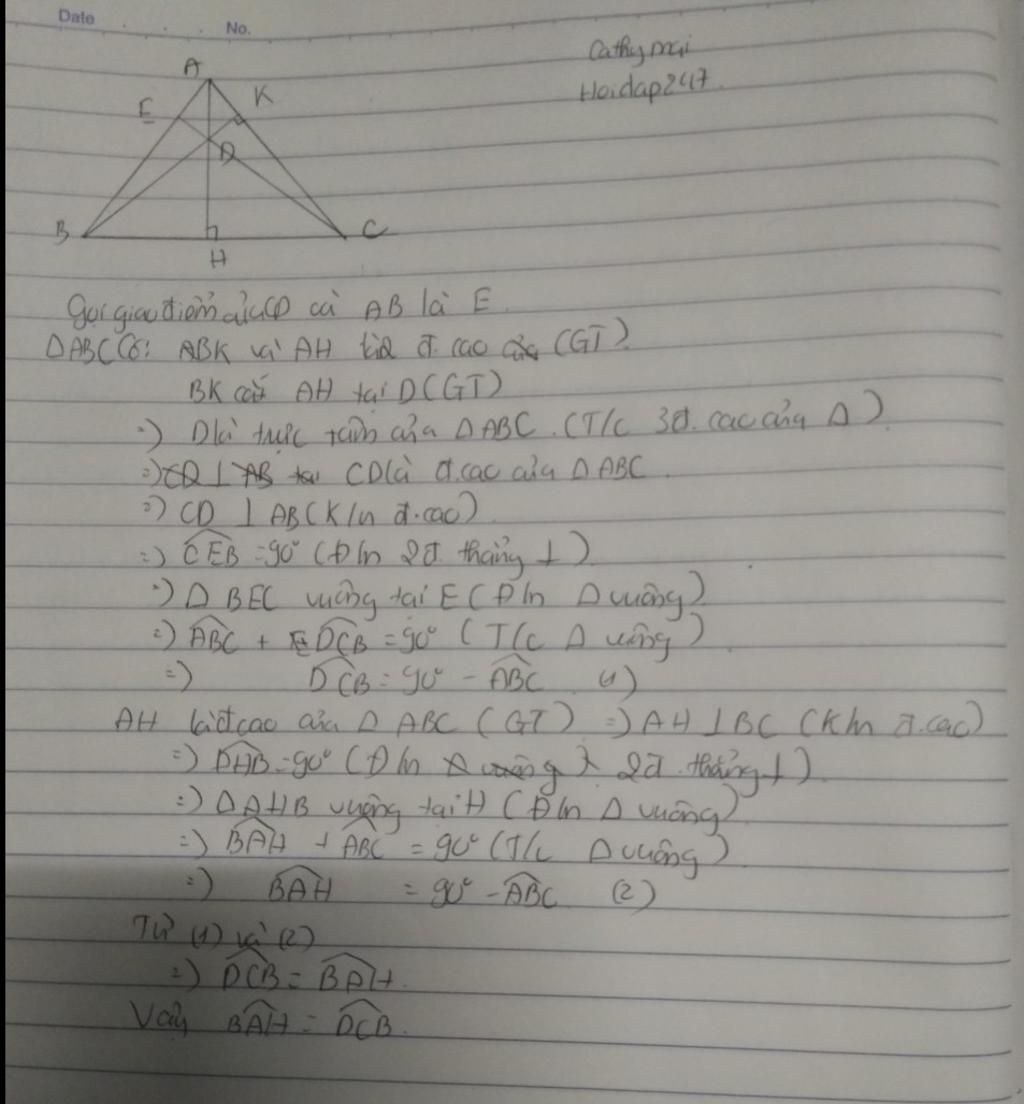 Date No.
Cathy mai
Hoidap247
A
E K
D
B C
H
Gọi giao điểm của CD và AB là E.
ΔABC Có: BK và AH là đ. cao của (GT)
BK cắt AH tại D (GT)
=) D là trực tâm của ΔABC. (T/c 3đ. cao của Δ)
=) CD là đ.cao của ΔABC
=) CD ⊥ AB (K/n đ.cao)
=) CEB = 90° (Đ/n 2đ. thẳng ⊥)
=) Δ BEC vuông tại E (Đ/n Δ vuông)
=) ABC + DCB = 90° (T/c Δ vuông)
=) DCB = 90° - ABC (1)
AH là đ.cao của Δ ABC (GT) =) AH ⊥ BC (K/n đ.cao)
=) DHB = 90° (Đ/n 2đ. thẳng ⊥)
=) ΔAHB vuông tại H (Đ/n Δ vuông)
=) BAH + ABC = 90° (T/c Δ vuông)
=) BAH = 90° - ABC (2)
Từ (1) và (2)
=) DCB = BAH.
Vậy BAH = DCB.